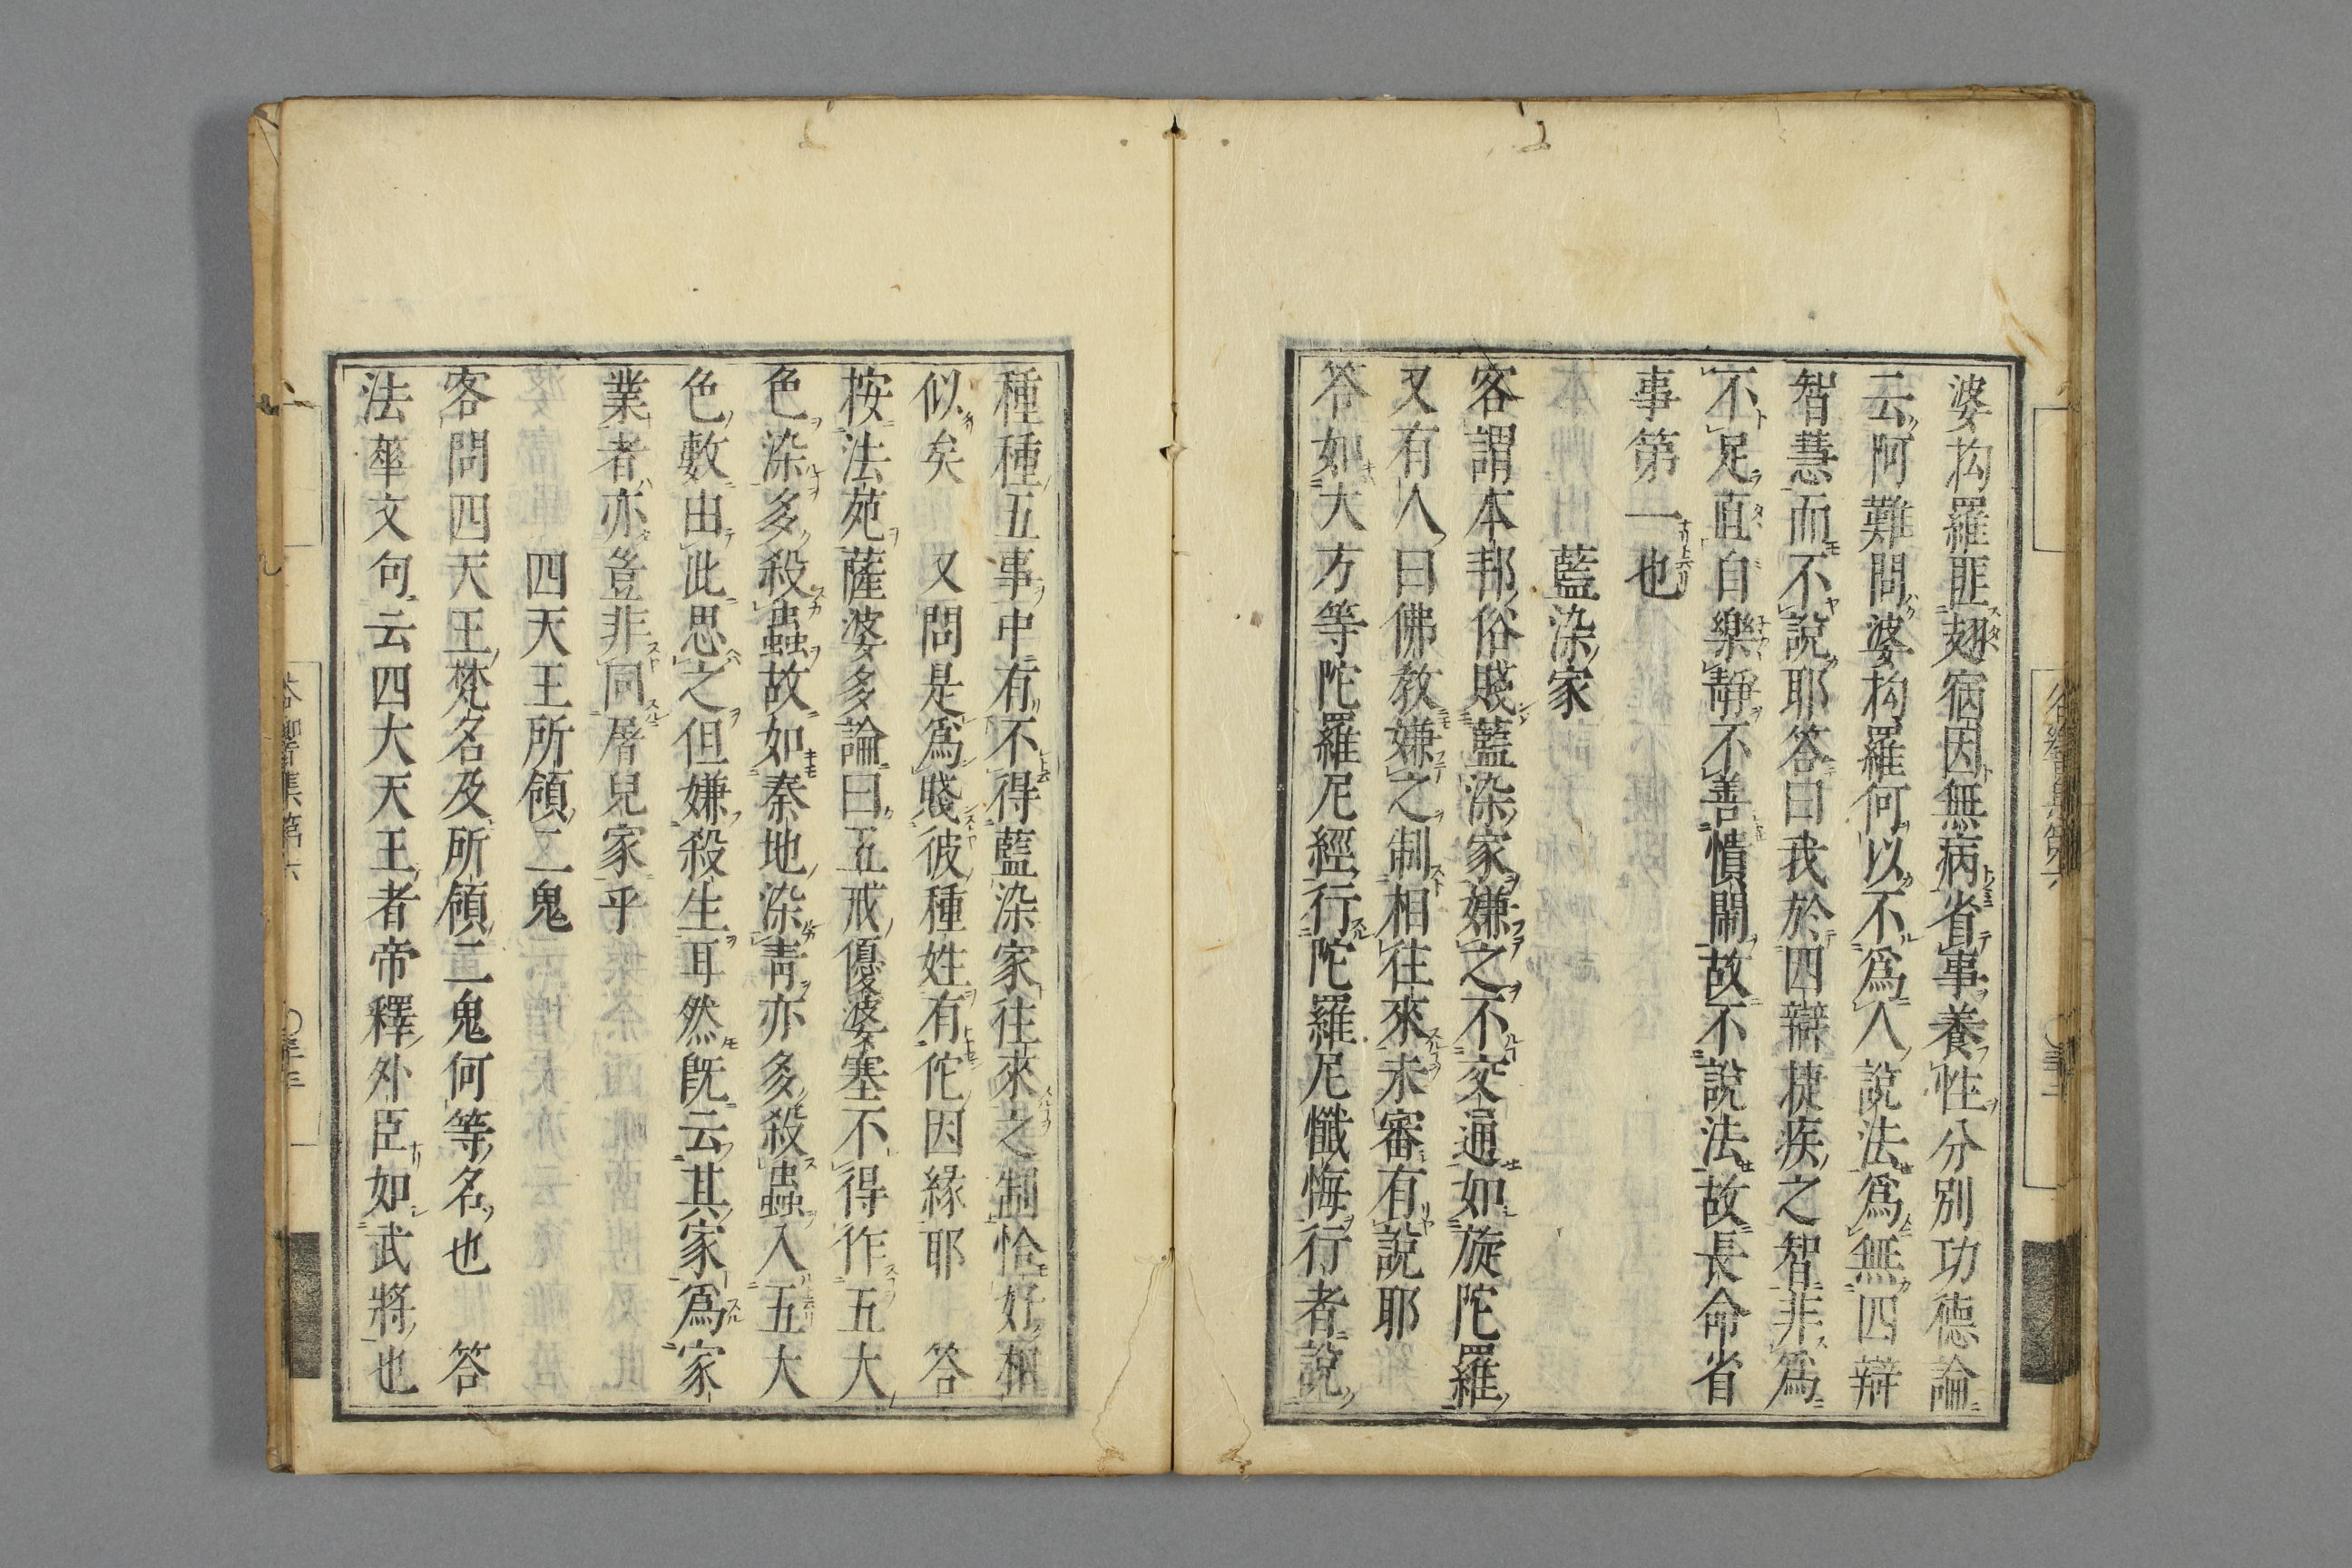 婆拘羅匪翅病因無病省事養性分別功德論
云阿難問婆拘羅何以不爲人說法爲無四辯
智慧而不說耶答曰我於四辯捷疾之智非爲
不足直自樂靜不善憒閙故不說法故長命省
事第一也
藍染家
客謂本邦俗賤藍染家嫌之不交通如旋陀羅
又有人曰佛教嫌之制相往來未審有說耶
答如大方等陀羅尼經行陀羅尼懺悔行者說
種種五事中有不得藍染家往來之制恰好相
似矣　又問是爲賤彼種姓有佗因緣耶　答
按法苑薩婆多論曰五戒優婆塞不得作五大
色染多殺蟲故如秦地染青亦多殺蟲入五大
色數由此思之但嫌殺生耳然旣云其家爲家
業者亦豈非同屠兒家乎
四天王所領二鬼
客問四天王梵名及所領二鬼何等名也　答
法華文句云四大天王者帝釋外臣如武將也